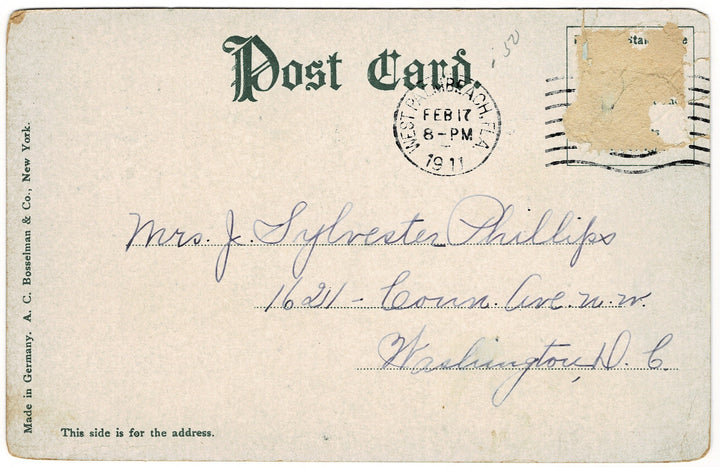 Post Card.
50
WEST PALM BEACH, FLA.
FEB 17
8-PM
1911
Mrs. J. Sylvester Phillips
1621 - Conn. Ave. n.w.
Washington, D. C.
This side is for the address.
Made in Germany. A. C. Bosselman & Co., New York.